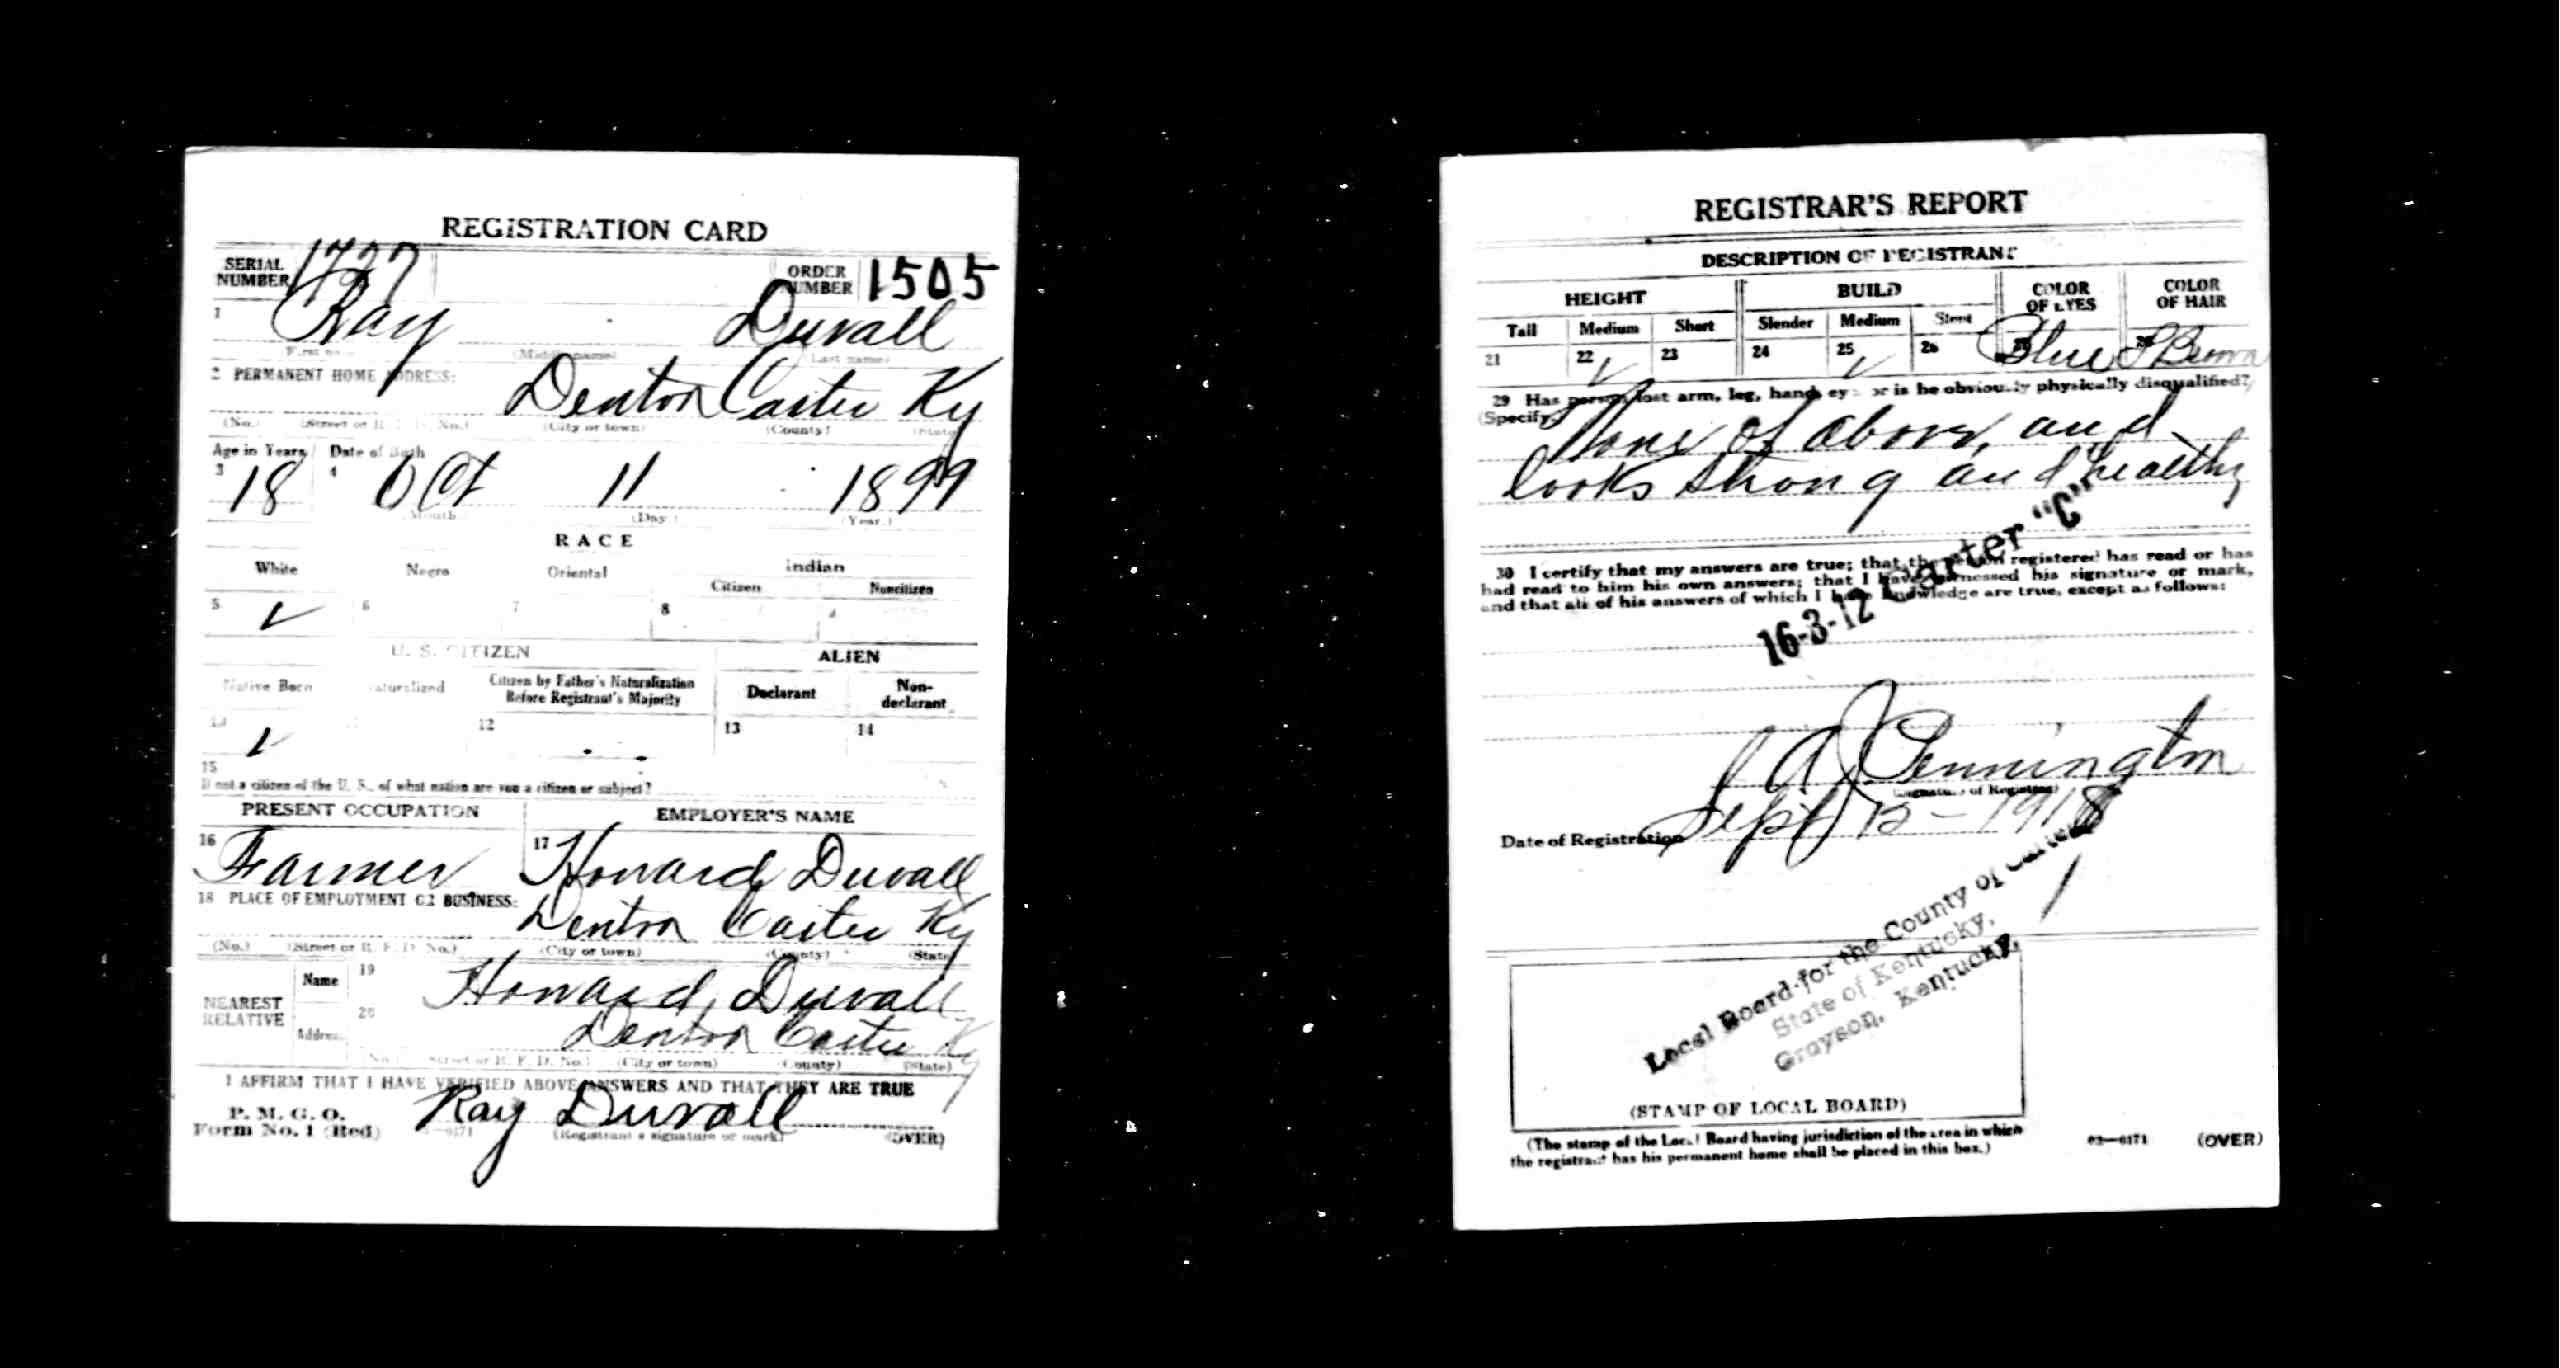 REGISTRATION CARD
SERIAL NUMBER 1727
ORDER NUMBER 1505
1 Ray Duvall
(Middle name) (Last name)
2 PERMANENT HOME ADDRESS: Denton Carter Ky
(No.) (Street or R. F. D. No.) (City or town) (County) (State)
Age in Years Date of Birth
3 18 4 Oct 11 1899
(Month) (Day) (Year.)
RACE
White Negro Oriental Indian
Citizen Noncitizen
5 ✓ 6 7 8
U. S. CITIZEN ALIEN
Native Born Naturalized Citizen by Father's Naturalization Before Registrant's Majority Declarant Non-declarant
10 ✓ 12 13 14
15
If not a citizen of the U. S., of what nation are you a citizen or subject?
PRESENT OCCUPATION EMPLOYER'S NAME
16 Farmer 17 Howard Duvall
18 PLACE OF EMPLOYMENT OR BUSINESS: Denton Carter Ky
(No.) (Street or R. F. D. No.) (City or town) (County) (State)
NEAREST RELATIVE
Name 19 Howard Duvall
Address 20 Denton Carter Ky
(No.) (Street or R. F. D. No.) (City or town) (County) (State)
I AFFIRM THAT I HAVE VERIFIED ABOVE ANSWERS AND THAT THEY ARE TRUE
P. M. G. O.
Form No. 1 (Red) Ray Duvall
(Registrant's signature or mark) (OVER)
REGISTRAR'S REPORT
DESCRIPTION OF REGISTRANT
HEIGHT BUILD COLOR OF EYES COLOR OF HAIR
Tall Medium Short Slender Medium Stout
21 22 ✓ 23 24 25 ✓ 26 Blue Brown
29 Has person lost arm, leg, hand, eye, or is he obviously physically disqualified?
(Specify) None of above, and
looks strong and healthy
30 I certify that my answers are true; that the person registered has read or has
had read to him his own answers; that I have witnessed his signature or mark,
and that all of his answers of which I have knowledge are true, except as follows:
16-3-12 Carter "C"
Pennington
(Signature of Registrar)
Date of Registration Sept 12 - 1918
Local Board for the County of Carter
State of Kentucky,
Grayson, Kentucky.
(STAMP OF LOCAL BOARD)
(The stamp of the Local Board having jurisdiction of the area in which
the registrant has his permanent home shall be placed in this box.)
03—6171 (OVER)